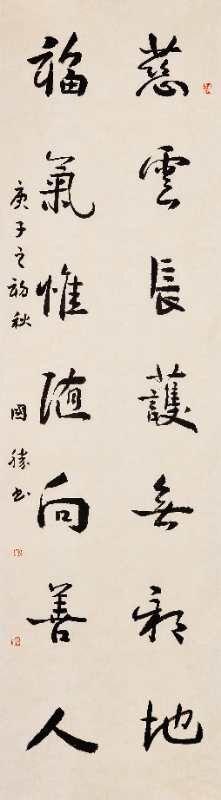 慈雲長護無邪地
福氣惟隨向善人
庚子之初秋 國勝书